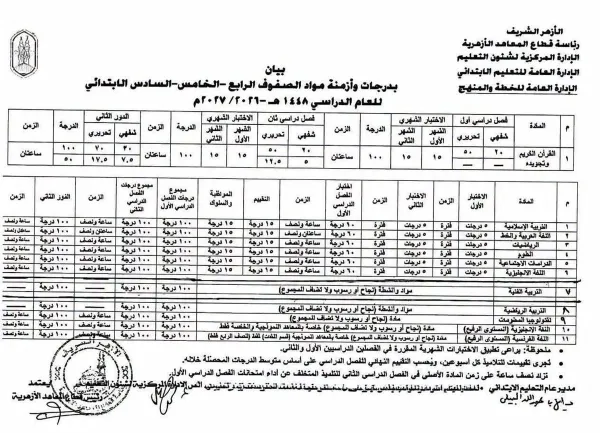 الأزهر الشريف
رئاسة قطاع المعاهد الأزهرية
الإدارة المركزية لشئون التعليم
الإدارة العامة للتعليم الابتدائي
الإدارة العامة للخطة والمنهج
بيان
بدرجات وأزمنة مواد الصفوف الرابع -الخامس-السادس الابتدائي
للعام الدراسي ١٤٤٨ هـ -٢٠٢٦/ ٢٠٢٧م
م المادة فصل دراسي أول الاختبار الشهري الدرجة الزمن فصل دراسي ثان الاختبار الشهري الدرجة الزمن الدور الثاني الدرجة الزمن
شفهي تحريري الشهر الأول الشهر الثاني شفهي تحريري الشهر الأول الشهر الثاني شفهي تحريري
١ القرآن الكريم وتجويده ٢٠ ٥٠ ١٥ ١٥ ١٠٠ ساعتان ٢٠ ٥٠ ١٥ ١٥ ١٠٠ ساعتان ٣٠ ٧٠ ١٠٠ ساعتان
٥ ١٢.٥ ٧.٥ ١٧.٥ ٥٠
م المادة الاختبار الأول الزمن الاختبار الثاني الزمن اختبار الفصل الأول الزمن التقييم المواظبة والسلوك مجموع درجات الفصل الدراسي الأول مجموع درجات الفصل الدراسي الثاني الدور الثاني الزمن
١ التربية الإسلامية ٥ درجات فترة ٥ درجات فترة ٦٠ درجة ساعة ونصف ١٥ درجة ١٥ درجة ١٠٠ درجة ١٠٠ درجة ١٠٠ درجة ساعة ونصف
٢ اللغة العربية والخط ٥ درجات فترة ٥ درجات فترة ٦٠ درجة ١٥ درجة ١٥ درجة ١٠٠ درجة ١٠٠ درجة ١٠٠ درجة
٣ الرياضيات ٥ درجات فترة ٥ درجات فترة ٦٠ درجة ساعة ونصف ١٥ درجة ١٥ درجة ١٠٠ درجة ١٠٠ درجة ١٠٠ درجة ساعة ونصف
٤ العلوم ٥ درجات فترة ٥ درجات فترة ٦٠ درجة ساعة ونصف ١٥ درجة ١٥ درجة ١٠٠ درجة ١٠٠ درجة ١٠٠ درجة ساعة ونصف
٥ الدراسات الاجتماعية ٥ درجات فترة ٥ درجات فترة ٦٠ درجة ساعة ونصف ١٥ درجة ١٥ درجة ١٠٠ درجة ١٠٠ درجة ١٠٠ درجة ساعة ونصف
٦ اللغة الانجليزية ٥ درجات فترة ٥ درجات فترة ٦٠ درجة ساعة ونصف ١٥ درجة ١٥ درجة ١٠٠ درجة ١٠٠ درجة ١٠٠ درجة ساعة ونصف
٧ التربية الفنية مواد وأنشطة (نجاح أو رسوب ولا تضاف المجموع) ١٠٠ درجة
٨ التربية الرياضية
٩ تكنولوجيا المعلومات مواد وأنشطة (نجاح أو رسوب ولا تضاف المجموع) ١٠٠ درجة
١٠ اللغة الإنجليزية (المستوى الرفيع) مادة (نجاح أو رسوب ولا تضاف المجموع) خاصة بالمعاهد النموذجية والخاصة فقط ١٠٠ درجة ساعة ونصف
١١ اللغة الفرنسية (المستوى الرفيع) مادة (نجاح أو رسوب ولا تضاف المجموع) خاصة بالمعاهد النموذجية (الصف الرابع فقط) ١٠٠ درجة ساعة ونصف
ملحوظة: يراعى تطبيق الاختبارات الشهرية المقررة في الفصلين الدراسيين الأول والثاني.
تجرى تقييمات للتلاميذ كل أسبوعين، ويحسب التقييم النهائي للفصل على أساس متوسط الدرجات المحصلة خلاله.
تزاد نصف ساعة على زمن المادة الأصلي في الفصل الدراسي الثاني للتلميذ المتخلف عن أداء امتحانات الفصل الدراسي الأول.
مدير عام التعليم الابتدائي الإدارة المركزية لشئون التعليم يعتمد
رئيس قطاع المعاهد الأزهرية